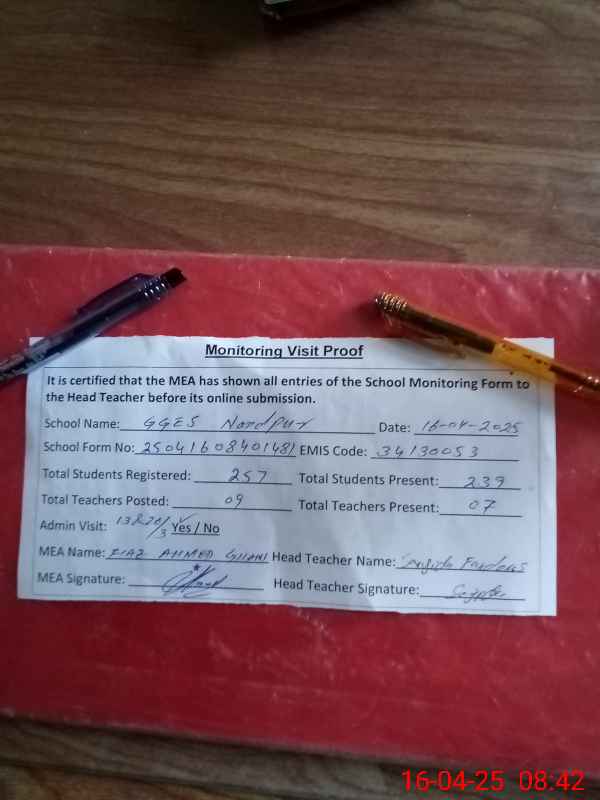 Monitoring Visit Proof
It is certified that the MEA has shown all entries of the School Monitoring Form to
the Head Teacher before its online submission.
School Name: GGES Nordpur Date: 16-04-2025
School Form No: 25041608401481 EMIS Code: 34130053
Total Students Registered: 257 Total Students Present: 239
Total Teachers Posted: 09 Total Teachers Present: 07
Admin Visit: 13&20/3 Yes / No
MEA Name: FIAZ AHMED GHANI Head Teacher Name:
MEA Signature: Head Teacher Signature:
16-04-25 08:42